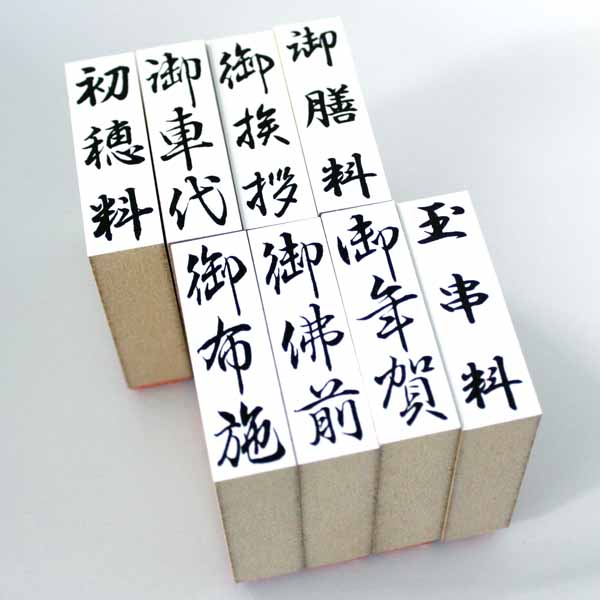 初穂料
御車代
御挨拶
御膳料
御布施
御佛前
御年賀
玉串料